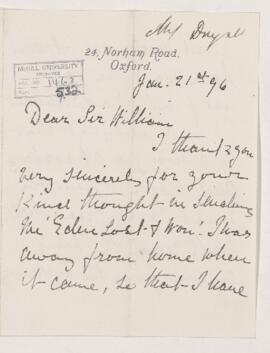 Mrs Drysd
24, Norham Road.
Oxford.
McGILL UNIVERSITY
ARCHIVES
ACC. NO. 1463
REF. 532
Jan. 21st 96
Dear Sir William
I thank you
very sincerely for your
kind thought in sending
me 'Eden Lost & Won'. I was
away from home when
it came, so that I have